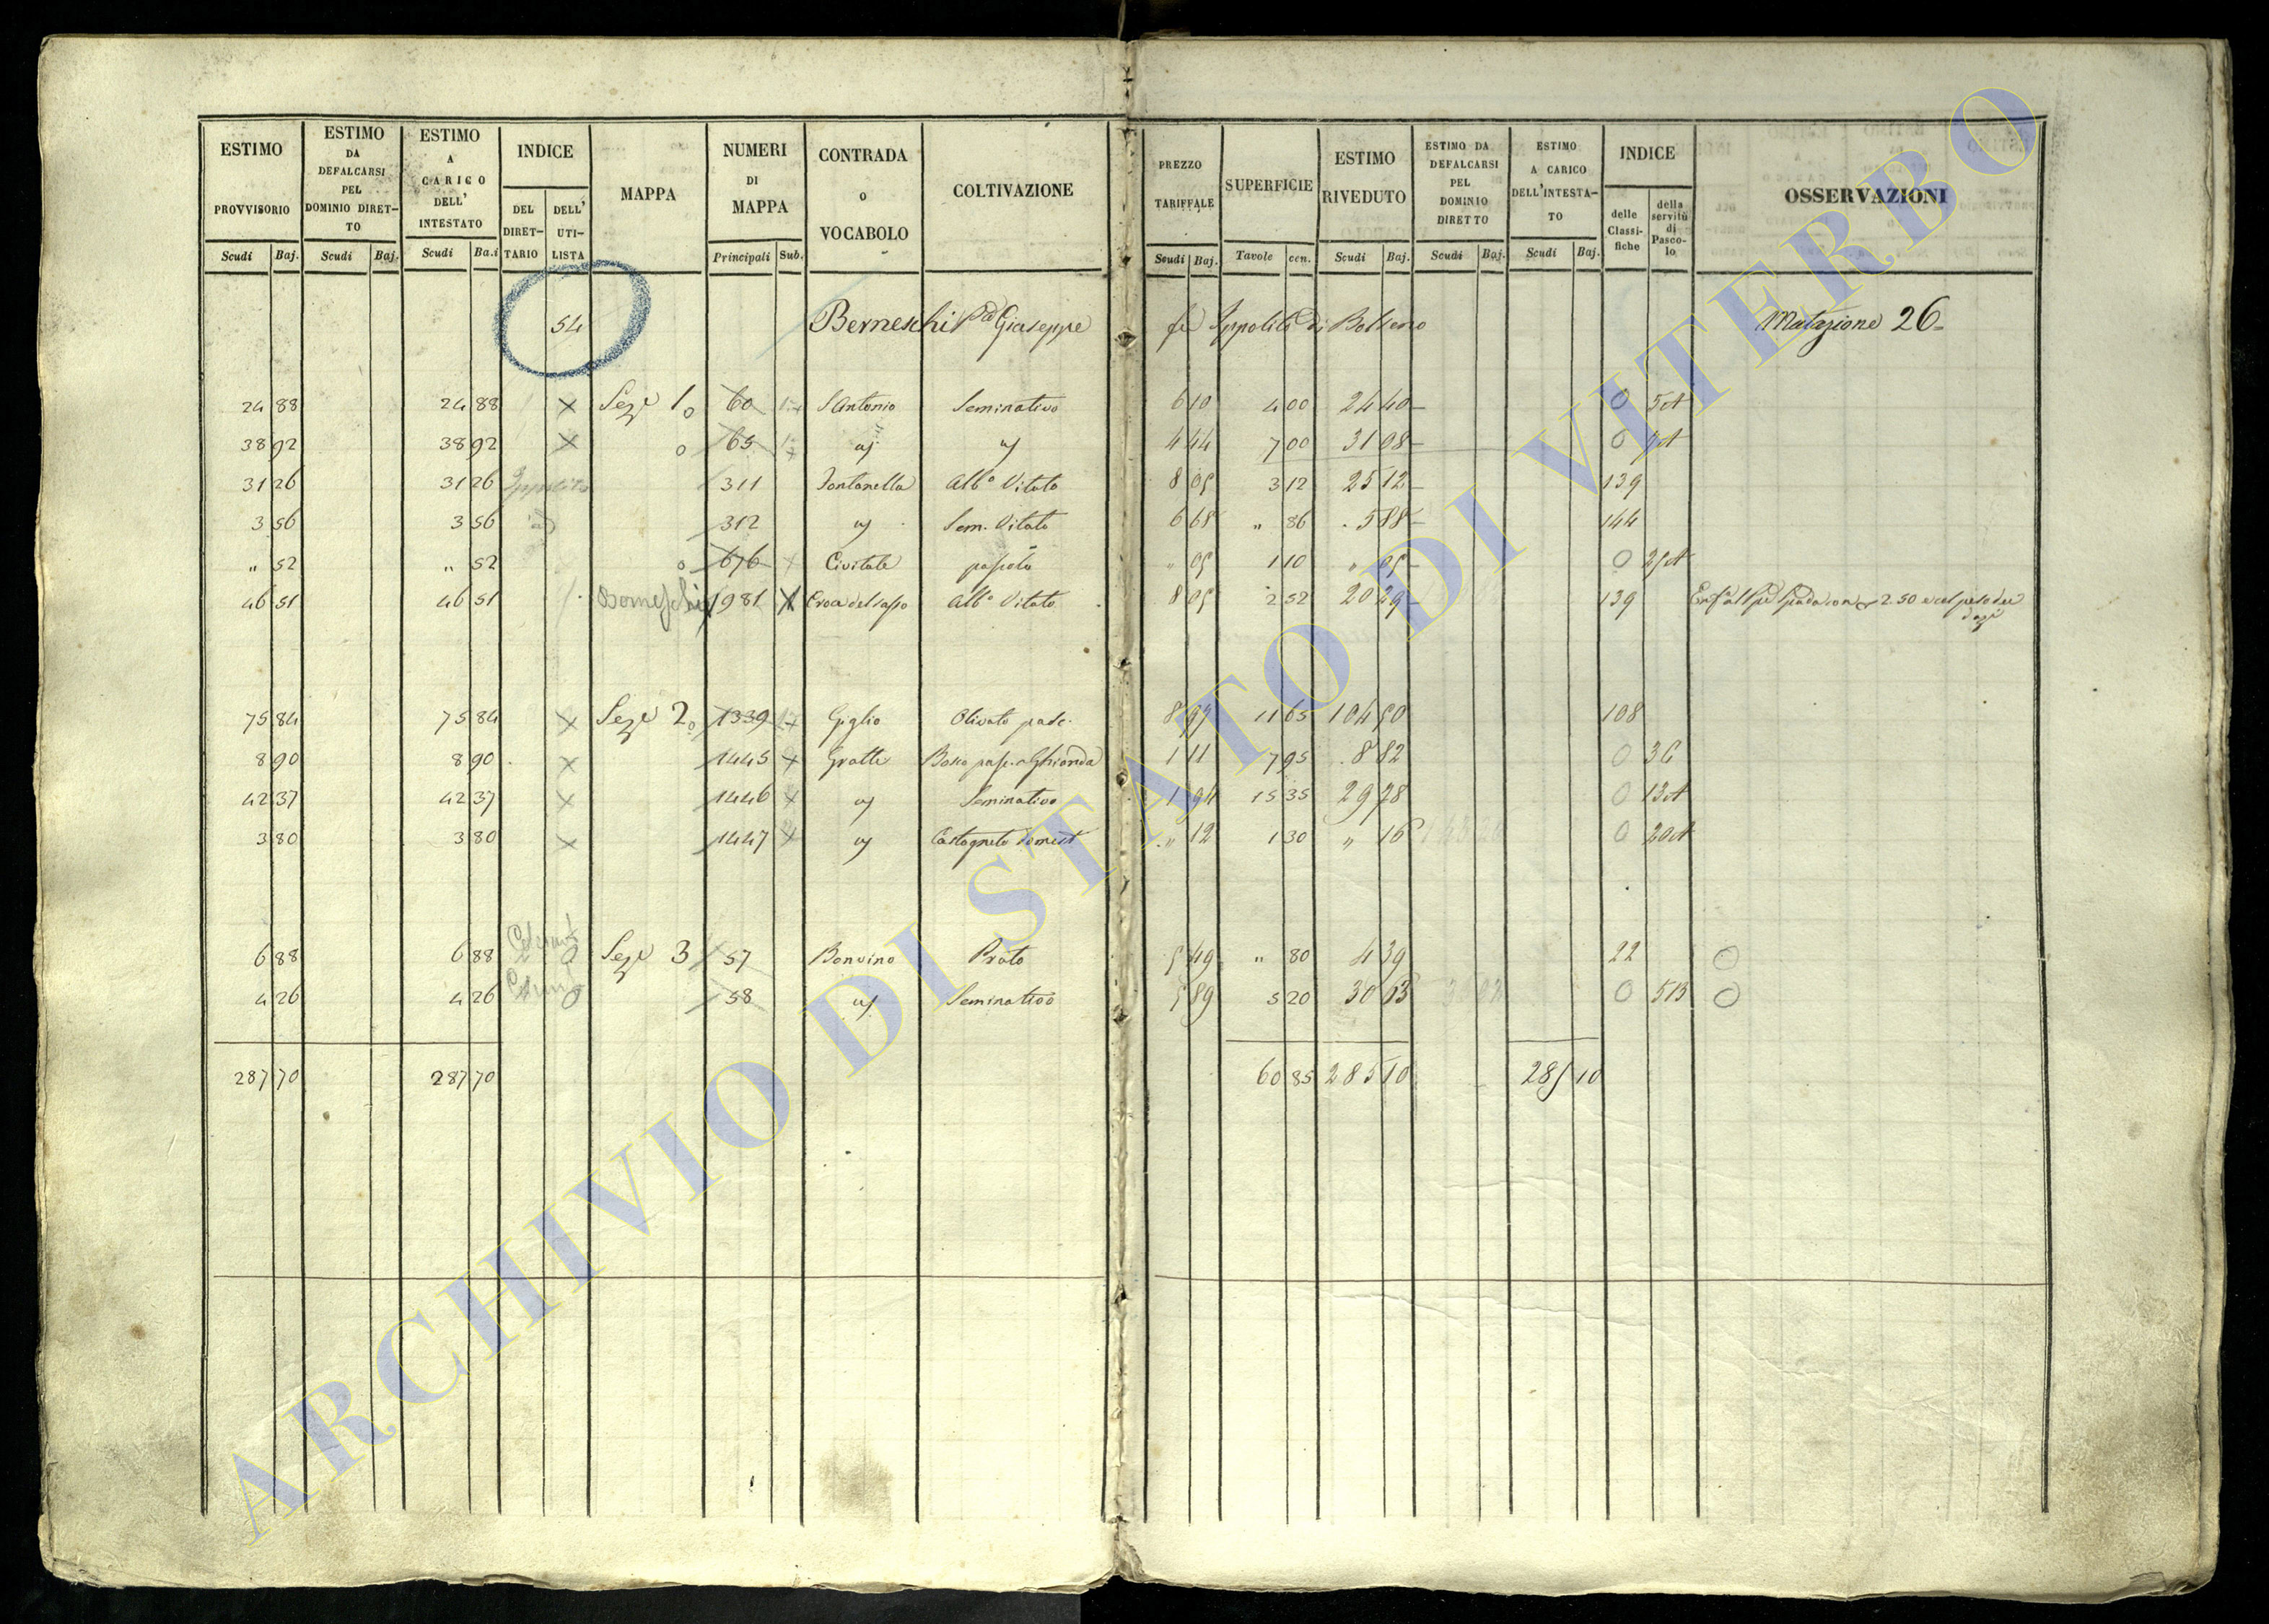 ESTIMO PROVVISORIO Scudi Baj.
ESTIMO DA DEFALCARSI PEL DOMINIO DIRETTO Scudi Baj.
ESTIMO A CARICO DELL' INTESTATO Scudi Ba.i
INDICE DEL DIRETTARIO DELL' UTILISTA
MAPPA
NUMERI DI MAPPA Principali Sub.
CONTRADA O VOCABOLO
COLTIVAZIONE
PREZZO TARIFFALE Scudi Baj.
SUPERFICIE Tavole cen.
ESTIMO RIVEDUTO Scudi Baj.
ESTIMO DA DEFALCARSI PEL DOMINIO DIRETTO Scudi Baj.
ESTIMO A CARICO DELL'INTESTATO Scudi Baj.
INDICE delle Classifiche della servitù di Pascolo
OSSERVAZIONI
54 Berneschi Giuseppe fu Ippolito di Bolseno Mutazione 26
24 88 24 88 x Seze 1 60 S Antonio Seminativo 6 10 4 00 24 40 0 5A
38 92 38 92 x 65 " " 4 44 7 00 31 08 0
31 26 31 26 Ippolito 311 Fontanella Alb.o Vitato 8 05 3 12 25 12 139
3 56 3 56 312 " Sem. Vitato 6 68 " 86 5 88 144
" 52 " 52 676 Civitale pascolo " 05 1 10 " 05 0
46 51 46 51 Berneschi 981 Croce del sasso Alb.o Vitato 8 05 2 52 20 29 139
75 84 75 84 x Seze 2 1339 Giglio Olivato pasc. 8 97 11 65 104 50 108
8 90 8 90 x 1445 Gratte Bosco pasc. Ghianda 1 11 7 95 8 82 0 36
42 37 42 37 x 1446 " Seminativo 1 94 15 35 29 78 0 13A
3 80 3 80 x 1447 " Castagneto Domest " 12 1 30 " 16 0 20A
6 88 6 88 Seze 3 57 Bonvino Prato 5 49 " 80 4 39 22
4 26 4 26 58 " Seminativo 5 89 5 20 30 63 0 5B
287 70 287 70 60 85 285 10 285 10
ARCHIVIO DI STATO DI VITERBO